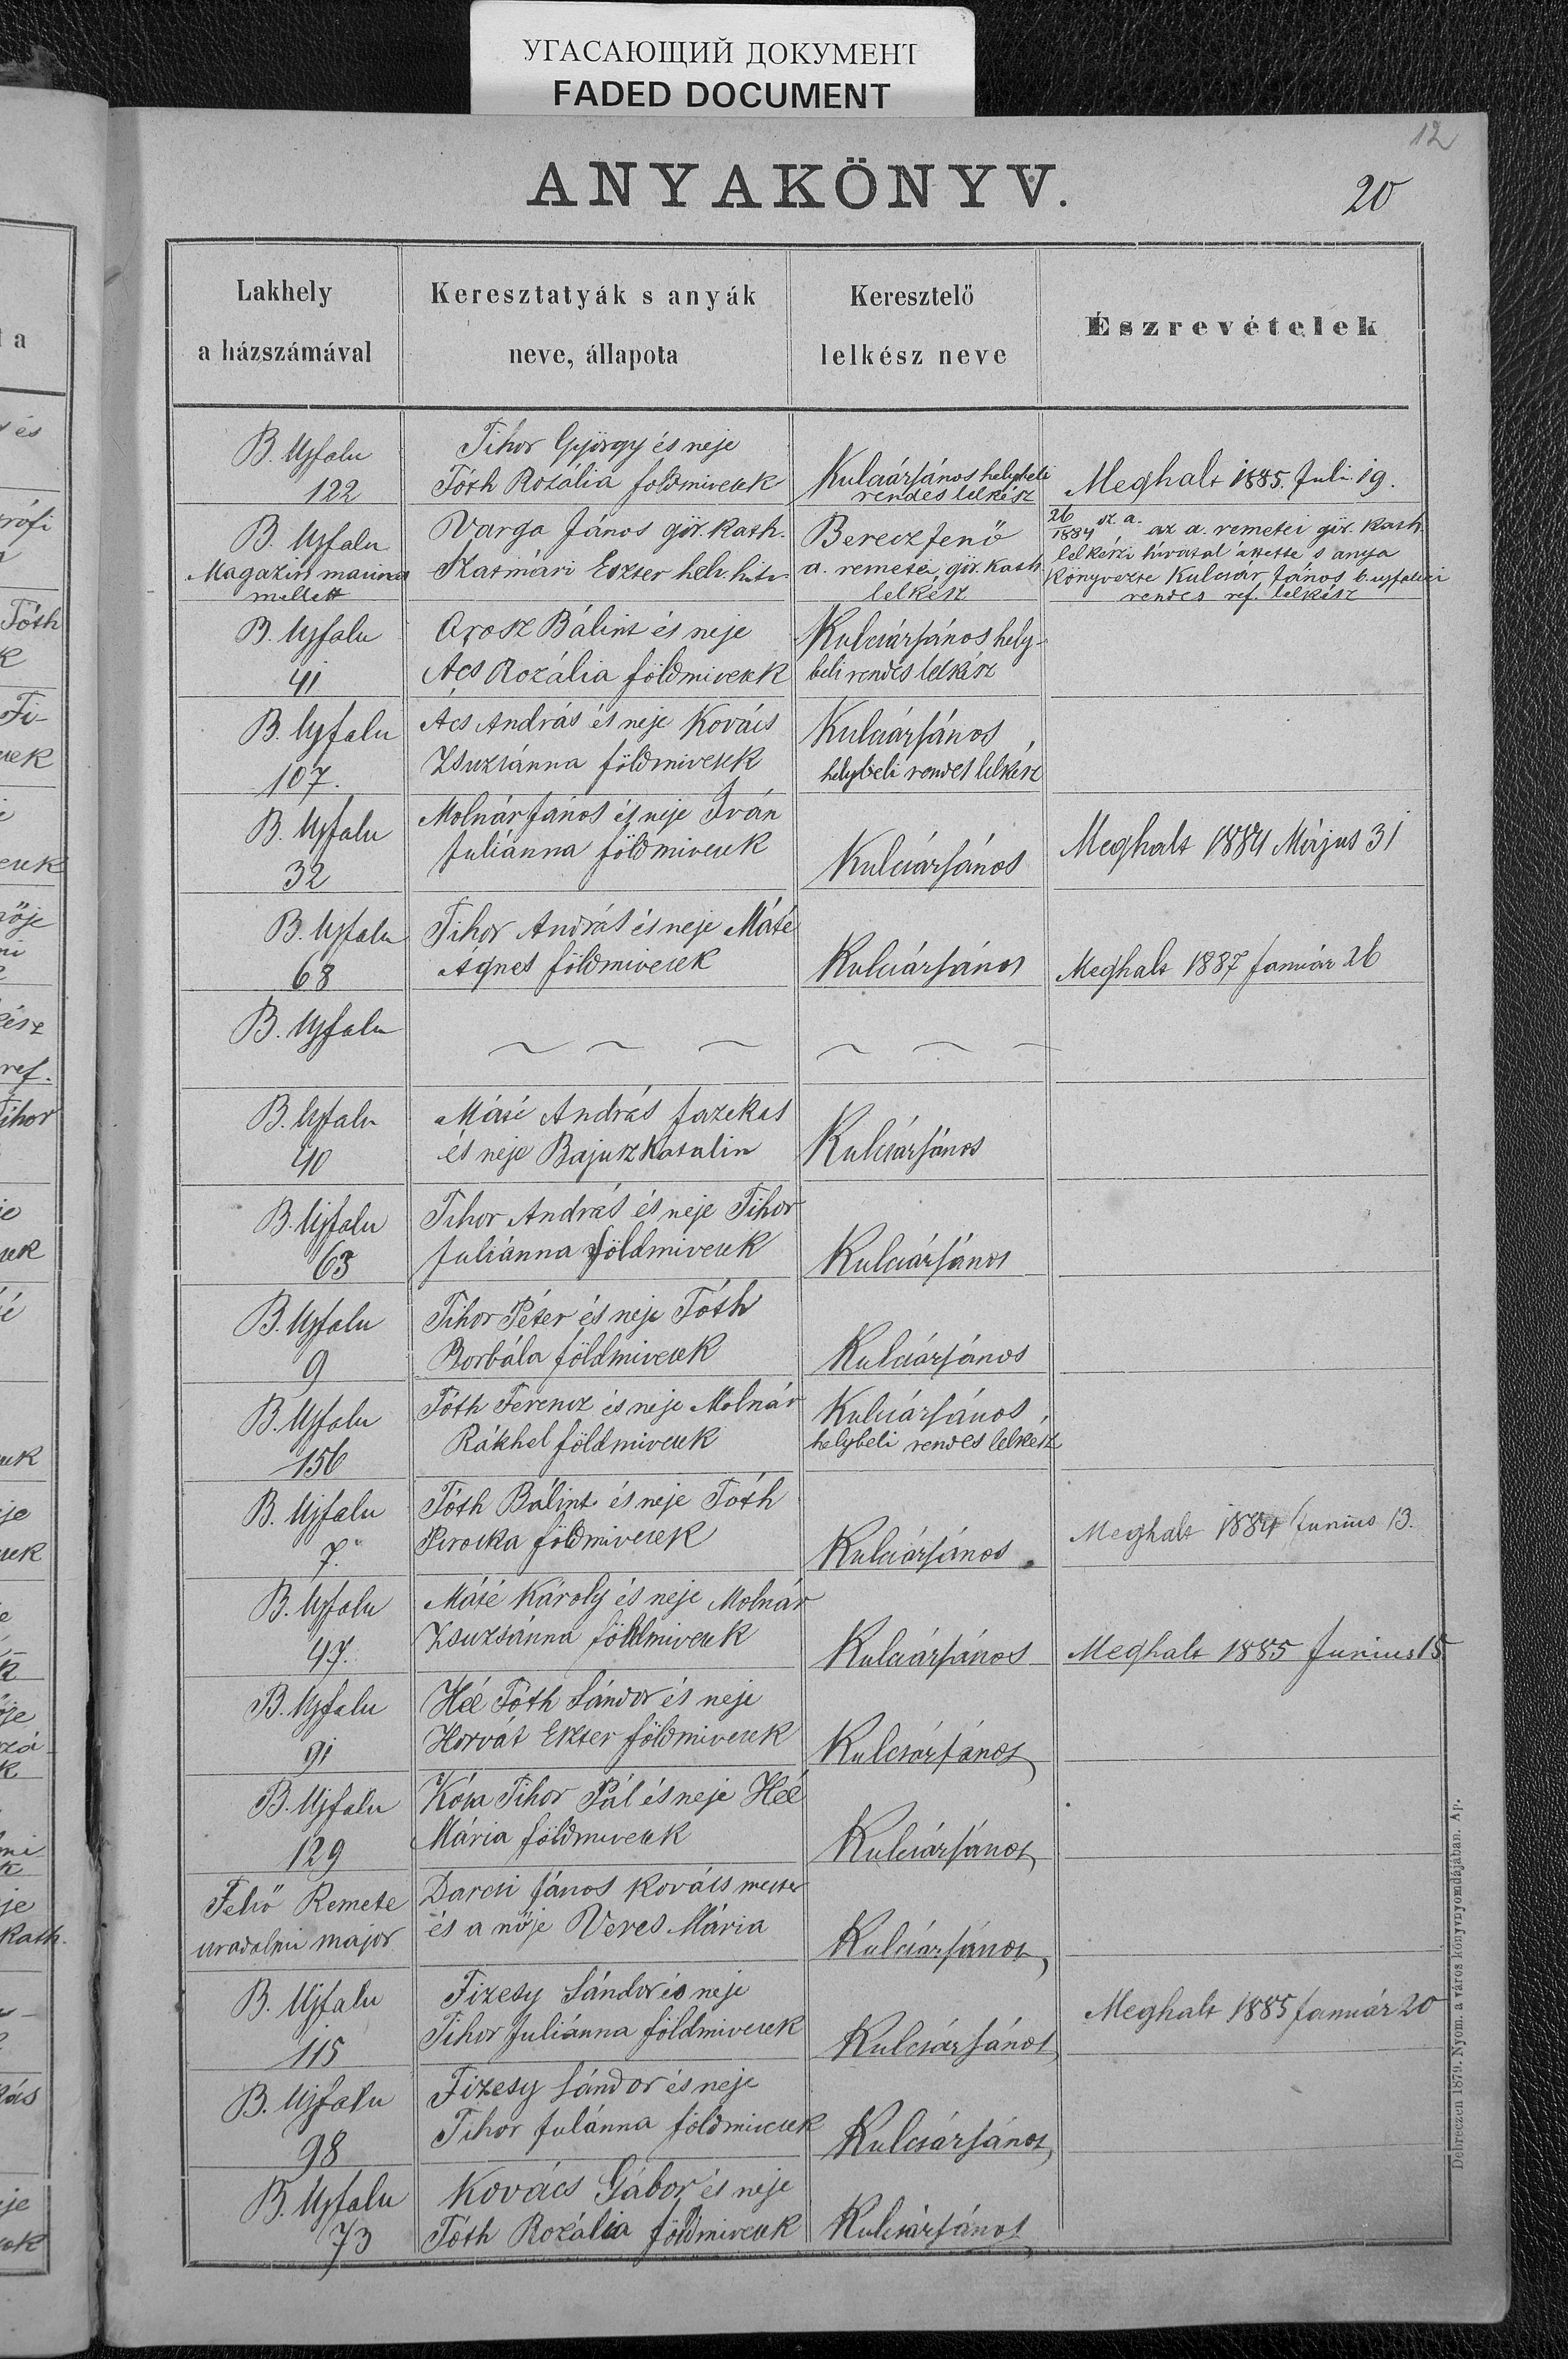 УГАСАЮЩИЙ ДОКУМЕНТ
FADED DOCUMENT
12
ANYAKÖNYV.
20
Lakhely
a házszámával
Keresztatyák s anyák
neve, állapota
Keresztelő
lelkész neve
Észrevételek
B. Ujfalu
122
Tihor György és neje
Tóth Rozália földmivesek
Kulcsár János helybeli
rendes lelkész
Meghalt 1885. Juli. 19.
B. Ujfalu
Magazin
mellett
Varga János gör. kath.
Szatmári Eszter helv. hitv.
Berecz Jenő
a. remetei gör. kath.
lelkész
26/1884 sz. a. az a. remetei gör. kath.
lelkészi hivatal áttette s anya
könyvezte Kulcsár János b. ujfalusi
rendes ref. lelkész
B. Ujfalu
41
Orosz Bálint és neje
Ács Rozália földmivesek
Kulcsár János hely-
beli rendes lelkész
B. Ujfalu
107.
Ács András és neje Kovács
Zsuzsánna földmivesek
Kulcsár János
helybeli rendes lelkész
B. Ujfalu
32
Molnár János és neje Iván
Juliánna földmivesek
Kulcsár János
Meghalt 1884 Május 31
B. Ujfalu
68
Tihor András és neje Máté
Agnes földmivesek
Kulcsár János
Meghalt 1887 Január 26
B. Ujfalu
B. Ujfalu
40
Máté András fazekas
és neje Bajusz Katalin
Kulcsár János
B. Ujfalu
63
Tihor András és neje Tihor
Juliánna földmivesek
Kulcsár János
B. Ujfalu
9
Tihor Péter és neje Tóth
Borbála földmivesek
Kulcsár János
B. Ujfalu
156
Tóth Ferencz és neje Molnár
Rákhel földmivesek
Kulcsár János
helybeli rendes lelkész
B. Ujfalu
7.
Tóth Bálint és neje Tóth
Piroska földmivesek
Kulcsár János
Meghalt 1884 Junius 13.
B. Ujfalu
47.
Máté Károly és neje Molnár
Zsuzsánna földmivesek
Kulcsár János
Meghalt 1885 Junius 15
B. Ujfalu
91
Héé Tóth Sándor és neje
Horvát Eszter földmivesek
Kulcsár János
B. Ujfalu
129
Kósa Tihor Pál és neje Héé
Mária földmivesek
Kulcsár János
Felső Remete
uradalmi major
Darcsi János kovács mester
és a nője Veres Mária
Kulcsár János
B. Ujfalu
115
Fizesy Sándor és neje
Tihor Juliánna földmivesek
Kulcsár János
Meghalt 1885 Január 20
B. Ujfalu
98
Fizesy Sándor és neje
Tihor Julánna földmivesek
Kulcsár János
B. Ujfalu
73
Kovács Gábor és neje
Tóth Rozália földmivesek
Kulcsár János
Debreczen 1879. Nyom. a város könyvnyomdájában. Ap.